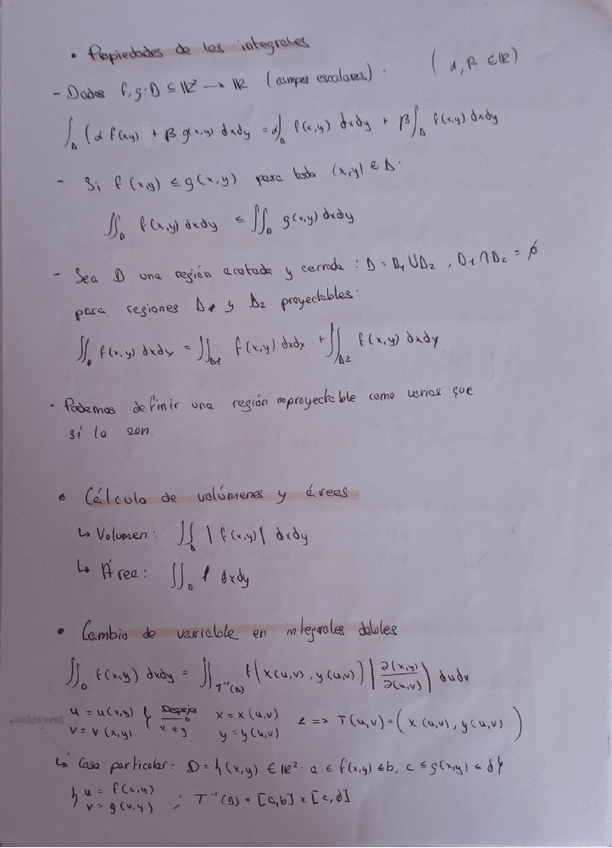 • Propiedades de las integrales
- Dados f, g: D ⊆ ℝ² → ℝ (campos escalares). (α, β ∈ ℝ)
∫_D (α f(x,y) + β g(x,y) dxdy = α∫_D f(x,y) dxdy + β∫_D f(x,y) dxdy
- Si f(x,y) ≤ g(x,y) para todo (x,y) ∈ D:
∬_D f(x,y) dxdy ≤ ∬_D g(x,y) dxdy
- Sea D una región acotada y cerrada : D = D₁ ∪ D₂ , D₁ ∩ D₂ = ∅
para regiones D₁ y D₂ proyectables:
∬_D f(x,y) dxdy = ∬_D₁ f(x,y) dxdy + ∬_D₂ f(x,y) dxdy
- Podemos definir una región no proyectable como varias que
sí lo son.
• Cálculo de volúmenes y áreas
↳ Volumen: ∬_D |f(x,y)| dxdy
↳ Área: ∬_D 1 dxdy
• Cambio de variable en integrales dobles
∬_D f(x,y) dxdy = ∬_T⁻¹(D) f(x(u,v), y(u,v)) |∂(x,y)/∂(u,v)| dudv
u = u(x,y) v = v(x,y) } Despeja x e y x = x(u,v) y = y(u,v) <=> T(u,v) = (x(u,v), y(u,v))
↳ Caso particular: D = {(x,y) ∈ ℝ²: a ≤ f(x,y) ≤ b, c ≤ g(x,y) ≤ d}
{ u = f(x,y) v = g(x,y) ; T⁻¹(D) = [a,b] x [c,d]